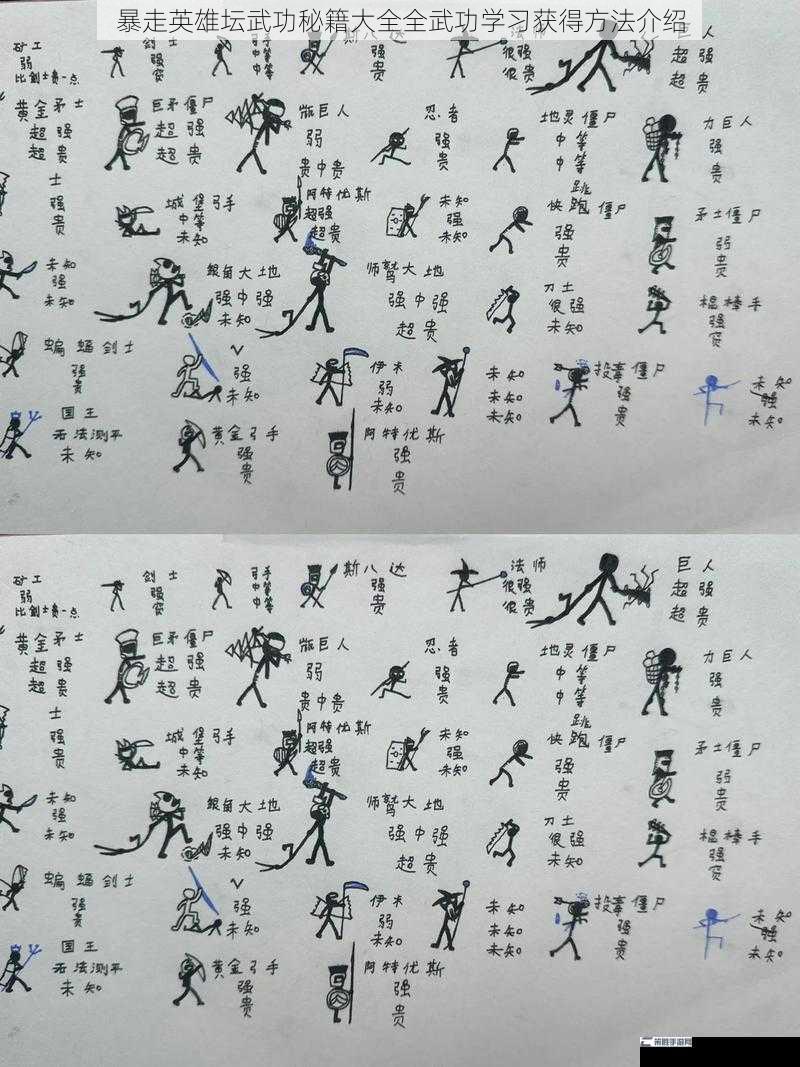 暴走英雄坛武功秘籍大全全武功学习获得方法介绍
矿工
弱
比剑士贵一点
强
中等
中等
斯八达
强
贵
法师
很强
很贵
巨人
超强
超贵
黄金矛士
超强
超贵
巨矛僵尸
超强
超贵
巨人
弱
贵中贵
忍者
强
贵
地灵僵尸
中等
中等
力巨人
强
贵
士
强
贵
城堡弓手
中等
未知
阿特优斯
超强
超贵
未知
强
未知
跳
快跑僵尸
强
贵
矛士僵尸
弱
贵
未知
强
未知
银角大地
强中强
未知
师鹫大地
强中强
超贵
刀土
很强
未知
棍棒手
强
蝙蝠剑士
强
贵
V
强
未知
伊木
弱
未知
未知
未知
未知
投毒僵尸
强
贵
未知
强
未知
国王
无法测平
未知
黄金弓手
强
贵
阿特优斯
强
贵
矿工
弱
比剑士贵一点
剑士
强
弓手
中等
中等
斯八达
强
贵
法师
很强
很贵
巨人
超强
超贵
黄金矛士
超强
超贵
巨矛僵尸
超强
超贵
巨人
弱
贵中贵
忍者
强
贵
地灵僵尸
中等
中等
力巨人
强
贵
士
强
贵
城堡弓手
中等
未知
阿特优斯
超强
超贵
未知
强
未知
跳
快跑僵尸
强
贵
矛士僵尸
弱
贵
未知
强
未知
银角大地
强中强
未知
师鹫大地
强中强
超贵
刀土
很强
未知
棍棒手
强
蝙蝠剑士
强
贵
V
强
未知
伊木
弱
未知
未知
未知
未知
投毒僵尸
强
贵
未知
强
未知
国王
无法测平
未知
黄金弓手
强
贵
阿特优斯
强
贵